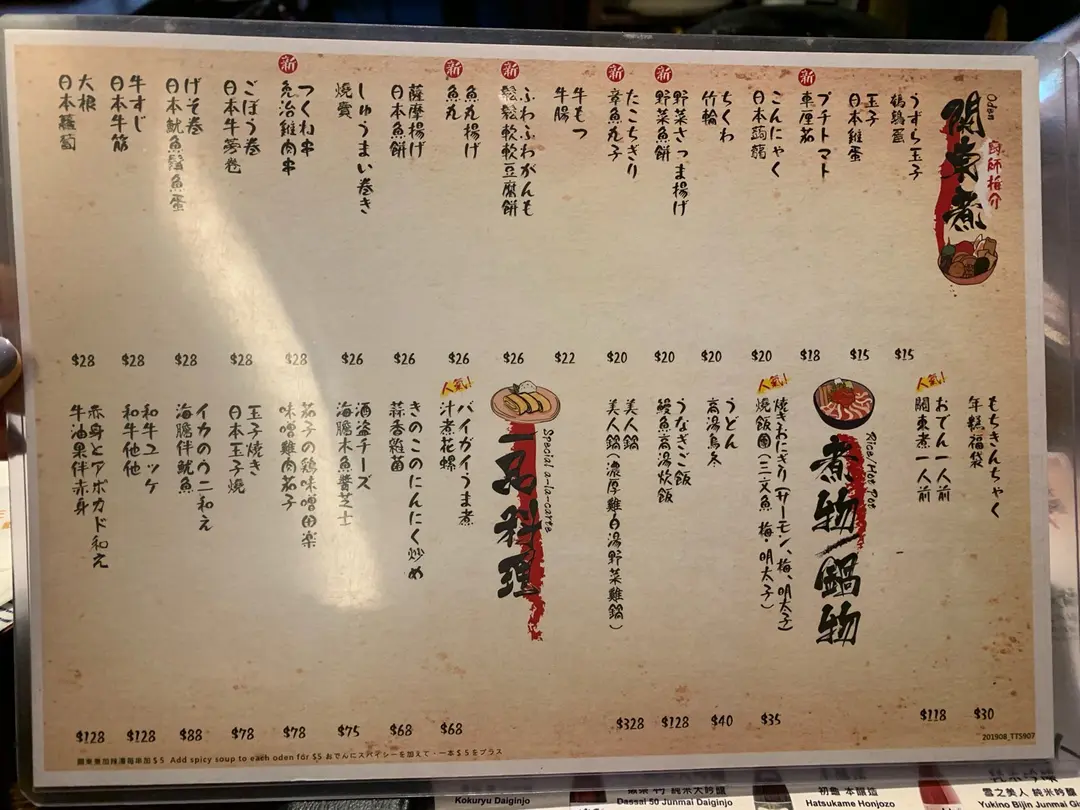 Oden
廚師推介
關東煮
うずら玉子
鵪鶉蛋
$15
玉子
日本雞蛋
$15
新
プチトマト
車厘茄
$18
こんにゃく
日本蒟蒻
$20
ちくわ
竹輪
$20
新
野菜さつま揚げ
野菜魚餅
$20
新
たこちぎり
章魚丸子
$20
牛もつ
牛腸
$22
新
ふわふわがんも
鬆鬆軟軟豆腐餅
$26
新
魚丸揚げ
魚丸
$26
薩摩揚げ
日本魚餅
$26
しゅうまい巻き
燒賣
$26
新
つくね串
免治雞肉串
$28
ごぼう巻
日本牛蒡卷
$28
げそ巻
日本魷魚鬚魚蛋
$28
牛すじ
日本牛筋
$28
大根
日本蘿蔔
$28
もちきんちゃく
年糕福袋
$30
人気!
おでん一人前
關東煮一人前
$118
Rice/Hot Pot
煮物/鍋物
人気!
焼きおにぎり(サーモン、梅、明太子)
燒飯團(三文魚、梅・明太子)
$35
うどん
高湯烏冬
$40
うなぎご飯
鰻魚高湯炊飯
$128
美人鍋
美人鍋(濃厚雞白湯野菜雞鍋)
$328
Special a-la-carte
一品料理
人気!
バイガイうま煮
汁煮花螺
$68
きのこのにんにく炒め
蒜香雜菌
$68
酒盗チーズ
海膽木魚醬芝士
$75
茄子の鶏味噌田楽
味噌雞肉茄子
$78
玉子焼き
日本玉子燒
$78
イカのウニ和え
海膽伴魷魚
$88
和牛ユッケ
和牛他他
$128
赤身とアボカド和え
牛油果伴赤身
$128
201908_TTS907
關東煮加辣湯每串加$5 Add spicy soup to each oden for $5 おでんにスパイシーを加えて・一本$5をプラス
Kokuryu Daiginjo
Dassai 50 Junmai Daiginjo
初亀 本醸造
Hatsukame Honjozo
雪之美人 純米吟釀
Yukino Bijin Junmai